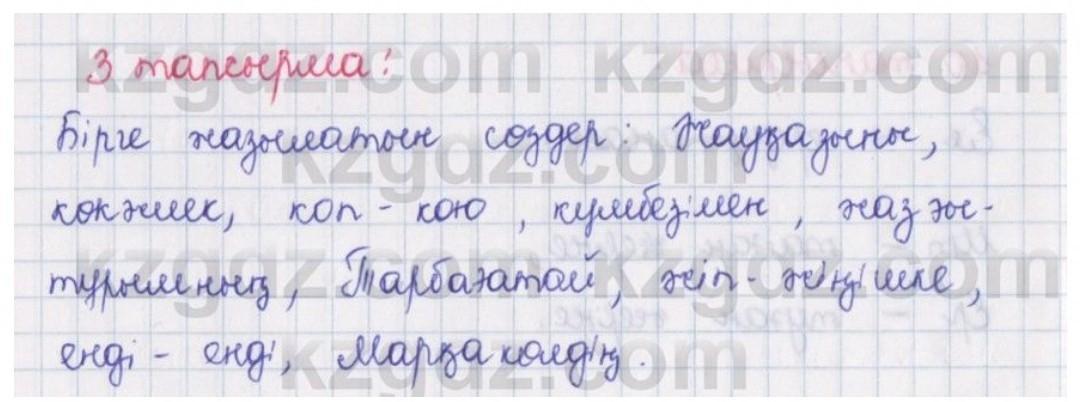 3 тапсырма:
Бірге жазылатын сөздер: Жауқазыны,
көкжиек, көп-кою, күмбезімен, жаз жы-
турымның, Тарбағатай, жіп-жіңішке,
енді - енді, Марқакөлдің.
kzgdz.com